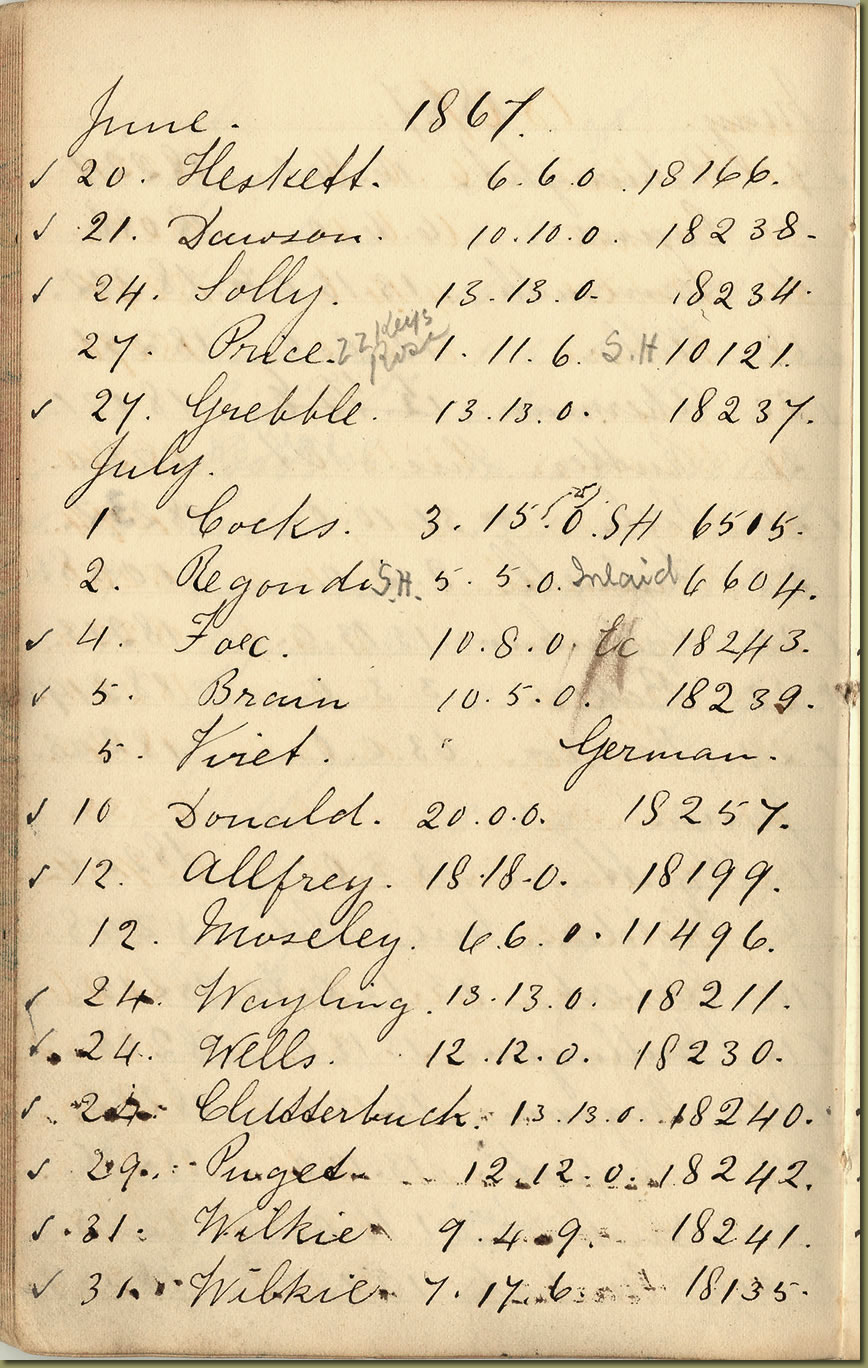 June. 1867.
✓ 20. Heskett. 6.6.0. 18166.
✓ 21. Dawson. 10.10.0. 18238.
✓ 24. Solly. 13.13.0. 18234.
27. Price. 22 Keys Rose 1.11.6. S.H 10121.
✓ 27. Grebble. 13.13.0. 18237.
July.
1 Cocks. 3.15.0. SH 6505.
2. Regondi S.H. 5.5.0. Inlaid 6604.
✓ 4. 10.8.0. Ec 18243.
✓ 5. Brain 10.5.0. 18239.
5. Viret. " German.
✓ 10 Donald. 20.0.0. 18257.
✓ 12. Allfrey. 18.18.0. 18199.
12. Moseley. 6.6.0. 11496.
✓ 24. Wayling. 13.13.0. 18211.
✓ 24. Wells. 12.12.0. 18230.
✓ Clutterbuck. 13.13.0. 18240.
✓ 29. Puget. 12.12.0. 18242.
✓ 31. Wilkie 9.4.9. 18241.
✓ 31. Wilkie 7.17.6 18135.